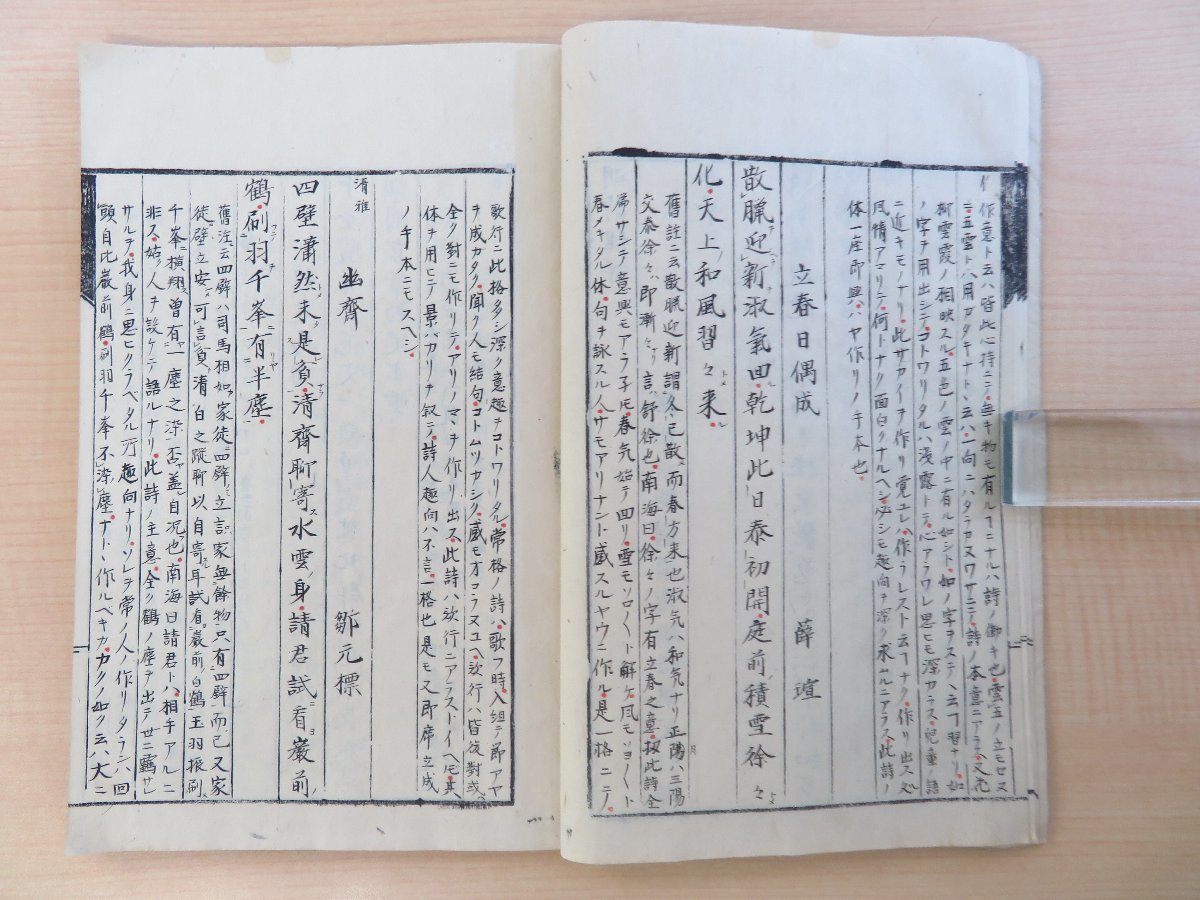 作意ト云ハ皆此心持ニテ無キ物モ有ルヿニナルハ詩ノ働キ也雲五ノ立モセス
ニ五雲トハ用カタキナト云ハ一向ニハタラカヌワサニテ詩ノ本意ニアラス又花
新雲霞ノ相映スル五色ノ雲ノ中ニ有ル如シト如ノ字ヲステ云ヿ習ナリ如
ノ字ヲ用出シテコトワリタルハ浅露トテ心アラワレ思モ深カラス兒童ノ語
ニ近キモノナリ此サカイヲ作リ覚エレハ作ラレスト云ヿナク作リ出ス処
風情アマリテ何トナク面白クナルヘシ少シモ趣向ヲ深ク求ムルニアラス此詩ノ
体一座即興ハヤ作リノ手本也
立春日偶成 薛瑄
散臘迎新淑氣回乾坤此日泰初開庭前積雪徐々
化天上和風習々来
舊註ニ云散臘迎新謂冬已散而春方来也淑気ハ和気ナリ正陽ハ三陽
交泰徐々ハ即漸々言舒徐也南海曰徐々ノ字有立春之意扨此詩全
席サシテ意興モアラ子𪜈春気始テ回リ雪モソロ〳〵ト解ケ風モソヨ〳〵ト
春メキタル体一句ヲ詠スル人サモアリナント感スルヤウニ作ル是一格ニテ
歌行ニ此格多シ深ク意趣ヲコトワリタル常格ノ詩ハ歌フ時入組テ即アヤ
ヲ成カタク聞ク人モ結句コトムツカシク感モオコラヌユヘ歌行ハ皆後對或ハ
全ク對ニモ作リテアリノマヽヲ作リ出ス此詩ハ歌行ニアラストイヘ𪜈其
体ヲ用ヒテ景バカリヲ叙テ詩人趣向ハ不言一格也是モ又即席立成
ノ手本ニモスヘシ
清雅
幽齊 鄒元標
四壁瀟然未是貧清齊聊寄水雲身請君試看巌前
鶴刷羽千峯有半塵
舊注云四壁ハ司馬相如家徒四壁立言家無餘物只有四壁而已又家
徒壁立安可言貧清白之蹤聊以自寄耳試看巌前白鶴玉羽振刷
千峯横翔曽有一塵之染否蓋自況也南海曰請君トハ相手アルニ
非ス姑ク人ヲ設ケテ語ルナリ此詩ノ主意全ク鶴ノ塵ヲ出テ世ニ羈サレ
サルヲ我身ニ思ヒクラベタル所趣向ナリソレヲ常ノ人ノ作リタランハ回
頭自比巌前鶴刷羽千峯不染塵ナト作ルベキカカクノ如ク云ハ大ニ